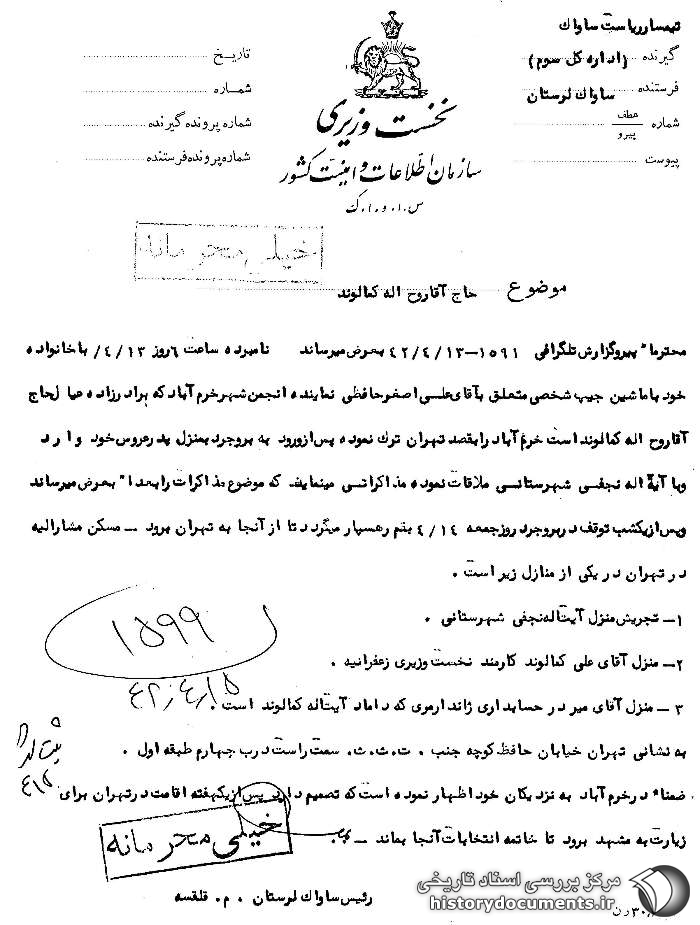 تیمسار ریاست ساواک
گیرنده (اداره کل سوم)
فرستنده ساواک لرستان
شماره عطف
پیرو
پیوست
نخست وزیری
سازمان اطلاعات و امنیت کشور
س.ا.و.ا.ک
تاریخ
شماره
شماره پرونده گیرنده
شماره پرونده فرستنده
خیلی محرمانه
موضوع حاج آقا روح اله کمالوند
محترما" پیرو گزارش تلگرافی ۱۵۹۱-۴۲/۴/۱۳ بعرض میرساند نامبرده ساعت ۶ روز ۴/۱۳/ با خانواده
خود با ماشین جیپ شخصی متعلق بآقای علی اصغر حافظی نماینده انجمن شهر خرم آباد که برادرزاده عیال حاج
آقا روح اله کمالوند است خرم آباد را بقصد تهران ترک نموده پس از ورود به بروجرد بمنزل پدر عروس خود وارد
وبا آیة اله نجفی شهرستانی ملاقات نموده مذاکراتی مینماید که موضوع مذاکرات را بعدا" بعرض میرساند
وپس از یکشب توقف در بروجرد روز جمعه ۴/۱۴ بقم رهسپار میگردد تا از آنجا به تهران برود – مسکن مشارالیه
در تهران در یکی از منازل زیر است .
۱– تجریش منزل آیت اله نجفی شهرستانی .
۲– منزل آقای علی کمالوند کارمند نخست وزیری زعفرانیه .
۳ – منزل آقای میر در حسابداری ژاندارمری که داماد آیت اله کمالوند است .
به نشانی تهران خیابان حافظ کوچه جنب . ت.ث.ث. سمت راست درب چهارم طبقه اول .
ضمنا" در خرم آباد به نزدیکان خود اظهار نموده است که تصمیم دارد پس از یکهفته اقامت در تهران برای
زیارت به مشهد برود تا خاتمه انتخابات آنجا بماند –
۱۵۹۹
۴۲/۴/۱۵
ثبت شد
۴/۱۵
خیلی محرمانه
رئیس ساواک لرستان . م . قلقسه
مرکز بررسی اسناد تاریخی
historydocuments.ir